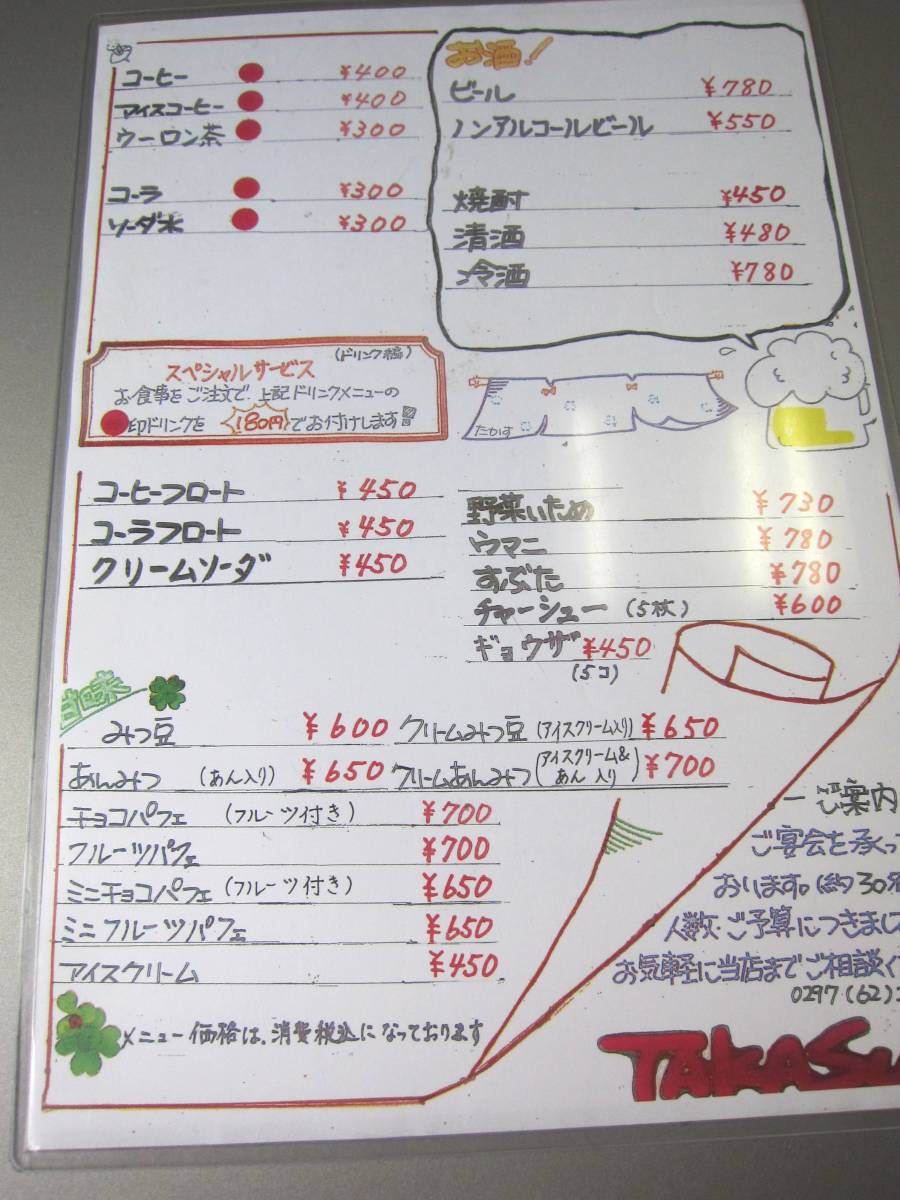 コーヒー ¥400
アイスコーヒー ¥400
ウーロン茶 ¥300
コーラ ¥300
ソーダ水 ¥300
お酒!
ビール ¥780
ノンアルコールビール ¥550
焼酎 ¥450
清酒 ¥480
冷酒 ¥780
(ドリンク編)
スペシャルサービス
お食事をご注文で、上記ドリンクメニューの
印ドリンクを 180円でお付けします!!
たかす
コーヒーフロート ¥450
コーラフロート ¥450
クリームソーダ ¥450
野菜いため ¥730
ウマニ ¥780
すぶた ¥780
チャーシュー (5枚) ¥600
ギョウザ ¥450
(5コ)
甘味
みつ豆 ¥600 クリームみつ豆 (アイスクリーム入り) ¥650
あんみつ (あん入り) ¥650 クリームあんみつ (アイスクリーム&あん入り) ¥700
チョコパフェ (フルーツ付き) ¥700
フルーツパフェ ¥700
ミニチョコパフェ (フルーツ付き) ¥650
ミニフルーツパフェ ¥650
アイスクリーム ¥450
メニュー価格は、消費税込になっております
ーご案内
ご宴会を承っ
おります。(約30名
人数・ご予算につきまし
お気軽に当店までご相談く
0297(62)
TAKASU